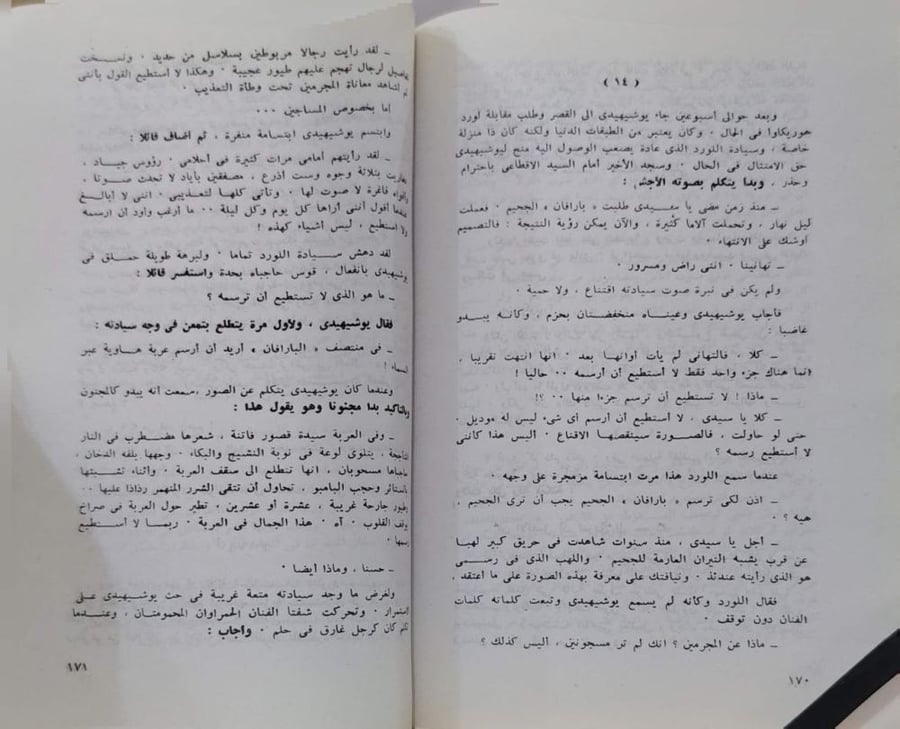 ( ١٤ )
وبعد حوالى أسبوعين جاء يوشيهيدى الى القصر وطلب مقابلة لورد
هوريكاوا فى الحال ٠ وكان يعتبر من الطبقات الدنيا ولكنه كان ذا منزلة
خاصة ، وسيادة اللورد الذى عادة يصعب الوصول اليه منح ليوشيهيدى
حق الامتثال فى الحال ٠ وسجد الأخير أمام السيد الاقطاعى باحترام
وحذر ، وبدا يتكلم بصوته الأجش :
ـ منذ زمن مضى يا سيدى طلبت « بارافان » الجحيم ٠ فعملت
ليل نهار ، وتحملت آلاما كثيرة ، والآن يمكن رؤية النتيجة : فالتصميم
أوشك على الانتهاء ٠
ـ تهانينا ٠ اننى راض ومسرور ٠
ولم يكن فى نبرة صوت سيادته اقتناع ، ولا حمية ٠
فأجاب يوشيهيدى وعيناه منخفضتان بحزم ، وكأنه يبدو
غاضبا :
ـ كلا ، فالتهانى لم يأت أوانها بعد ٠ انها انتهت تقريبا ،
انما هناك جزء واحد فقط لا أستطيع أن أرسمه ٠٠ حاليا !
ـ ماذا ! لا تستطيع أن ترسم جزءا منها ٠٠ ؟!
ـ كلا يا سيدى ، لا أستطيع أن أرسم أى شىء ليس له موديل ٠
حتى لو حاولت ، فالصورة سينقصها الاقناع ٠ اليس هذا كأننى
لا أستطيع رسمه ؟
عندما سمع اللورد هذا مرت ابتسامة مزمجرة على وجهه ٠
ـ اذن لكى ترسم « بارافان » الجحيم يجب أن ترى الجحيم ،
هيه ؟ ٠
ـ أجل يا سيدى ، منذ سنوات شاهدت فى حريق كبير لهبا
عن قرب يشبه النيران العارمة للجحيم ٠ واللهب الذى فى رسمى
هو الذى رأيته عندئذ ٠ ونيافتك على معرفة بهذه الصورة على ما أعتقد ٠
فقال اللورد وكأنه لم يسمع يوشيهيدى وتبعت كلماته كلمات
الفنان دون توقف ٠
ـ ماذا عن المجرمين ؟ انك لم تر مسجونين ، أليس كذلك ؟
١٧٠
ـ لقد رأيت رجالا مربوطين بسلاسل من حديد ٠ ونسخت
لرجال تهجم عليهم طيور عجيبة ٠ وهكذا لا أستطيع القول بأننى
لم أشاهد معاناة المجرمين تحت وطأة التعذيب ٠
أما بخصوص المساجين ٠٠٠
وابتسم يوشيهيدى ابتسامة منفرة ، ثم أضاف قائلا :
ـ لقد رأيتهم أمامى مرات كثيرة فى أحلامى ٠ رؤوس جياد ،
بثلاثة وجوه وست أذرع ، مصفقين بأياد لا تحدث صوتا ،
وأفواه فاغرة لا صوت لها ٠ وتأتى كلها لتعذيبى ٠ اننى لا أبالغ
عندما أقول أننى أراها كل يوم وكل ليلة ٠٠ ما أرغب وأود أن أرسمه
ولا أستطيع ، ليس أشياء كهذه !
لقد دهش سيادة اللورد تماما ٠ ولبرهة طويلة حملق فى
يوشيهيدى بانفعال ، قوس حاجباه بحدة واستفسر قائلا :
ـ ما هو الذى لا تستطيع أن ترسمه ؟
فقال يوشيهيدى ، ولأول مرة يتطلع بتمعن فى وجه سيادته :
ـ فى منتصف « البارافان » أريد أن أرسم عربة هاوية عبر
السماء !
وعندما كان يوشيهيدى يتكلم عن الصور ، سمعت أنه يبدو كالمجنون
وبالتأكيد بدا مجنونا وهو يقول هذا :
ـ وفى العربة سيدة قصور فاتنة ، شعرها مضطرب فى النار
، يتلوى لوعة فى نوبة النشيج والبكاء ٠ وجهها يلفه الدخان ،
حاجباها مسحوبان ، انها تتطلع الى سقف العربة ٠ وأثناء تشبثها
بأستائر وحجب البامبو ، تحاول أن تتقى الشرر المنهمر رذاذا عليها ٠٠
وطيور جارحة غريبة ، عشرة أو عشرين ، تطير حول العربة فى صراخ
القلوب ٠ آه ٠ هذا الجمال فى العربة ٠ ربما لا أستطيع
رسمها ٠
ـ حسنا ، وماذا أيضا ٠
ولغرض ما وجد سيادته متعة غريبة فى حث يوشيهيدى على
استمرار ٠ وتحركت شفتا الفنان الحمراوان المحمومتان ، وعندما
تكلم كان كرجل غارق فى حلم ٠ وأجاب :
١٧١